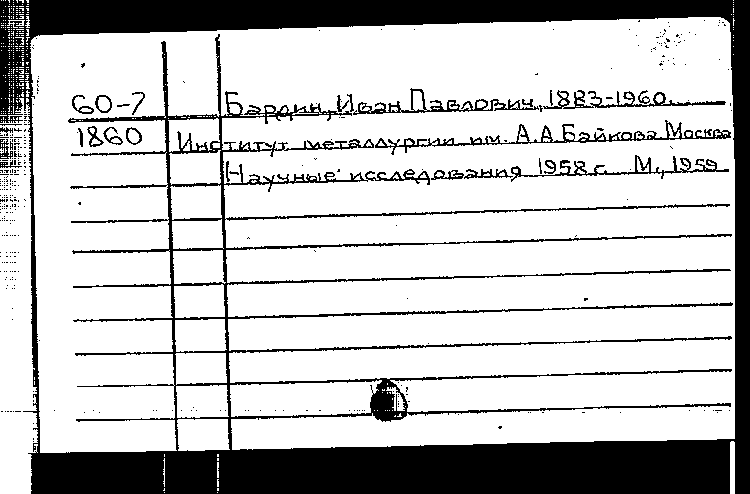 60-7 Бардин, Иван Павлович, 1883-1960.
1860 Институт металлургии им. А.А.Байкова. Москва
Научные исследования 1958 г. М., 1959